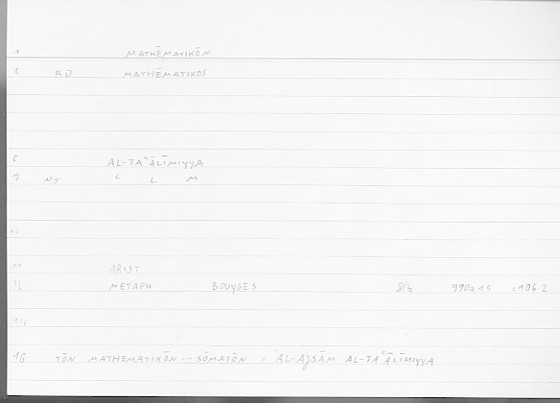 1 MATHĒMATIKŌN
2 RD MATHĒMATIKOS
6 AL-TAʿĀLĪMIYYA
7 NT L L M
10
11 ARIST
12 METAPH BOUYGES 990a 15 :106.2
14
16 TŌN MATHEMATIKŌN ... SŌMATŌN : AL-AǦSĀM AL-TAʿĀLĪMIYYA